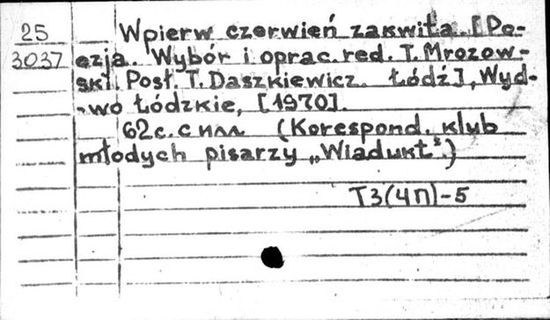 25
3037
Wpierw czerwień zakwitła. [Po-
ezja. Wybór i oprac. red. T. Mrozow-
ski. Posł. T. Daszkiewicz. Łódź], Wyd-
-wo Łódzkie, [1970].
62 с. с илл (Korespond. klub
młodych pisarzy „Wiadukt”.)
Т3(4П)-5